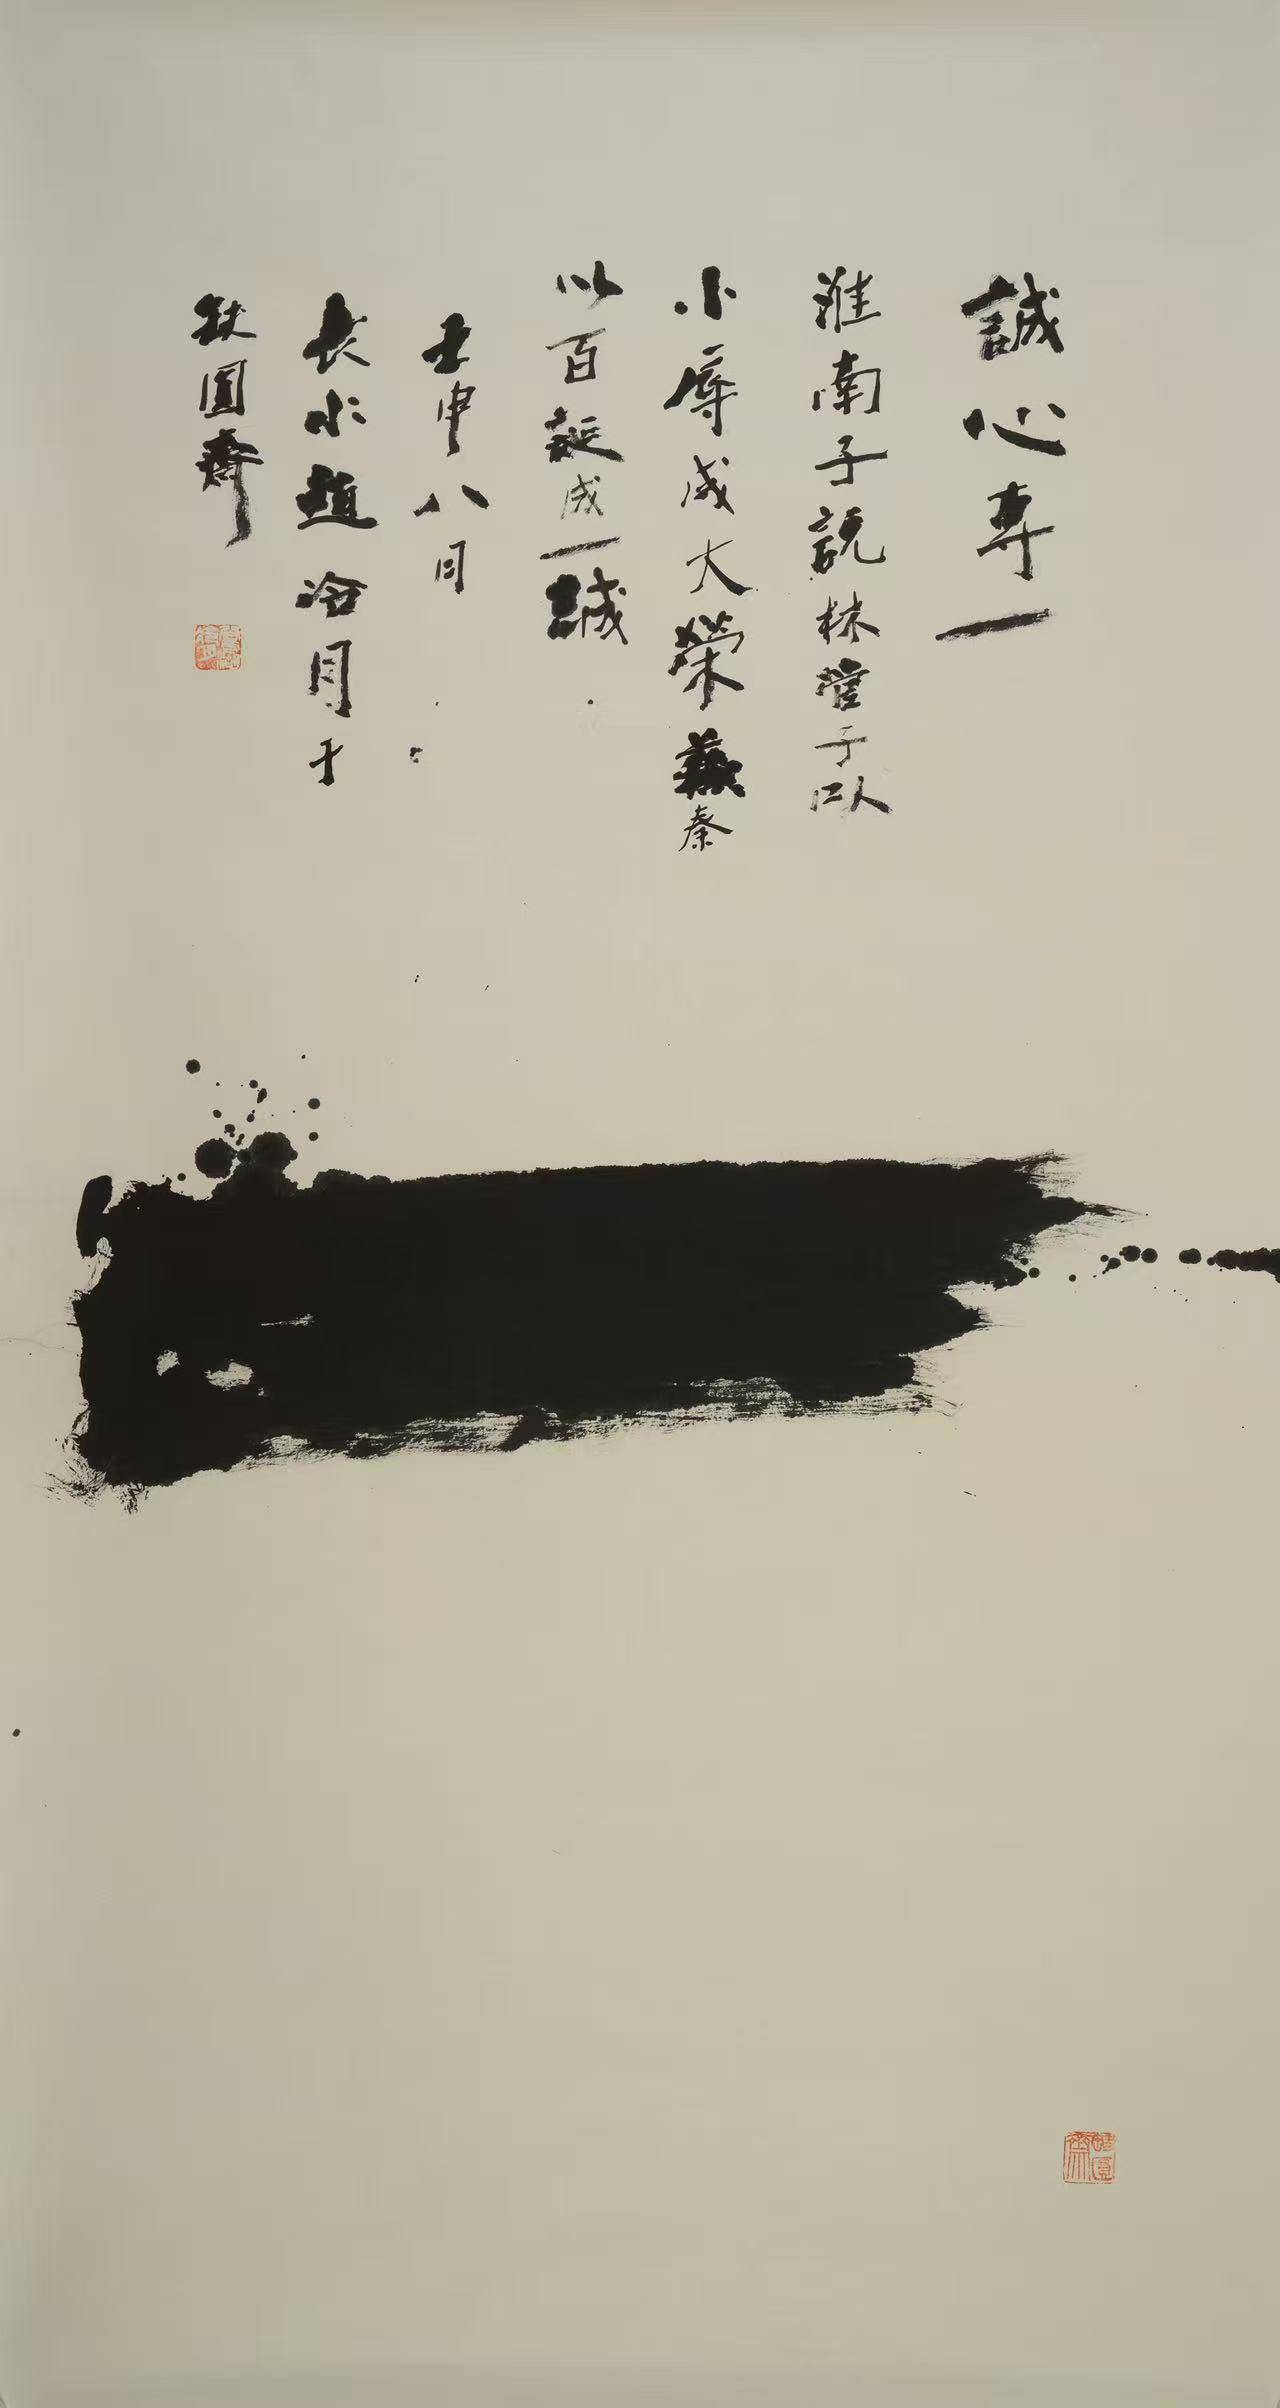 誠心專一
淮南子說林管子以
小辱成大榮蘇秦
以百誕成一誠
壬申八月
長水趙冷月于
缺圓齋
缺圓齋